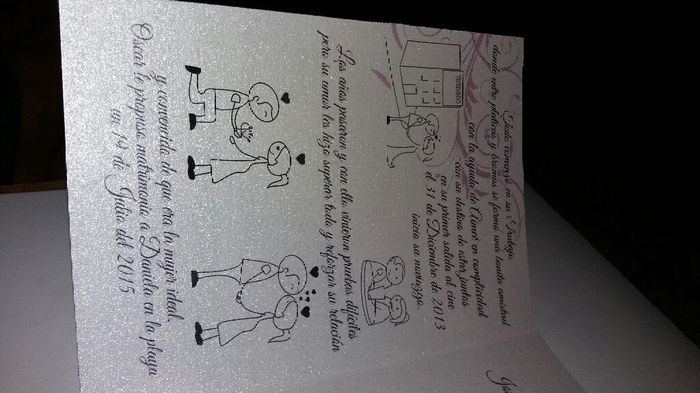 Todo comenzó en su Trabajo
donde entre platicas y bromas se formo una bonita amistad
con la ayuda de en complicidad
con su destino de estar juntos
en su primer salida al cine
el 31 de Diciembre de 2013
inicia su noviazgo.
Los años pasaron y con ello vinieron pruebas difíciles
pero su amor los hizo superar todo y reforzar su relación
y convencido de que era la mujer ideal,
Oscar le propuso matrimonio a Daniela en la playa
un 19 de Julio del 2015